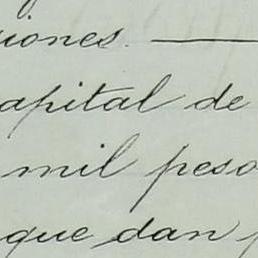 iones.
apital de
mil peso
que dan p